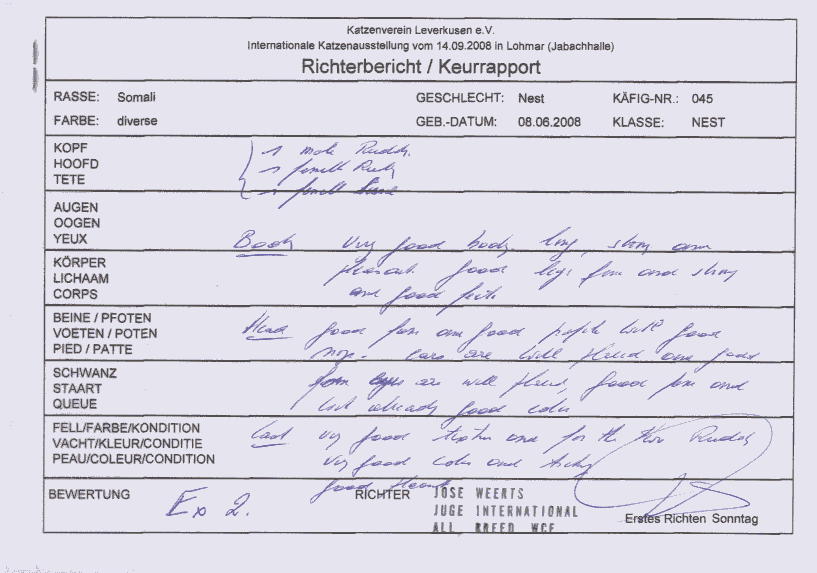 Katzenverein Leverkusen e.V.
Internationale Katzenausstellung vom 14.09.2008 in Lohmar (Jabachhalle)
Richterbericht / Keurrapport
RASSE: Somali GESCHLECHT: Nest KÄFIG-NR.: 045
FARBE: diverse GEB.-DATUM: 08.06.2008 KLASSE: NEST
KOPF
HOOFD
TETE
1 male Ruddy.
1 female Ruddy
1 female
AUGEN
OOGEN
YEUX
Body very good body, long, strong and
KÖRPER
LICHAAM
CORPS
good legs firm and strong
and good feets
BEINE / PFOTEN
VOETEN / POTEN
PIED / PATTE
Head good form and good profile with good
ears are well placed and good
SCHWANZ
STAART
QUEUE
form eyes are well placed, good form and
already good color
FELL/FARBE/KONDITION
VACHT/KLEUR/CONDITIE
PEAU/COLEUR/CONDITION
Coat very good and for the Ruddy
very good color and
good
BEWERTUNG Ex 2. RICHTER JOSE WEERTS
JUGE INTERNATIONAL
ALL BREED WCF
Erstes Richten Sonntag